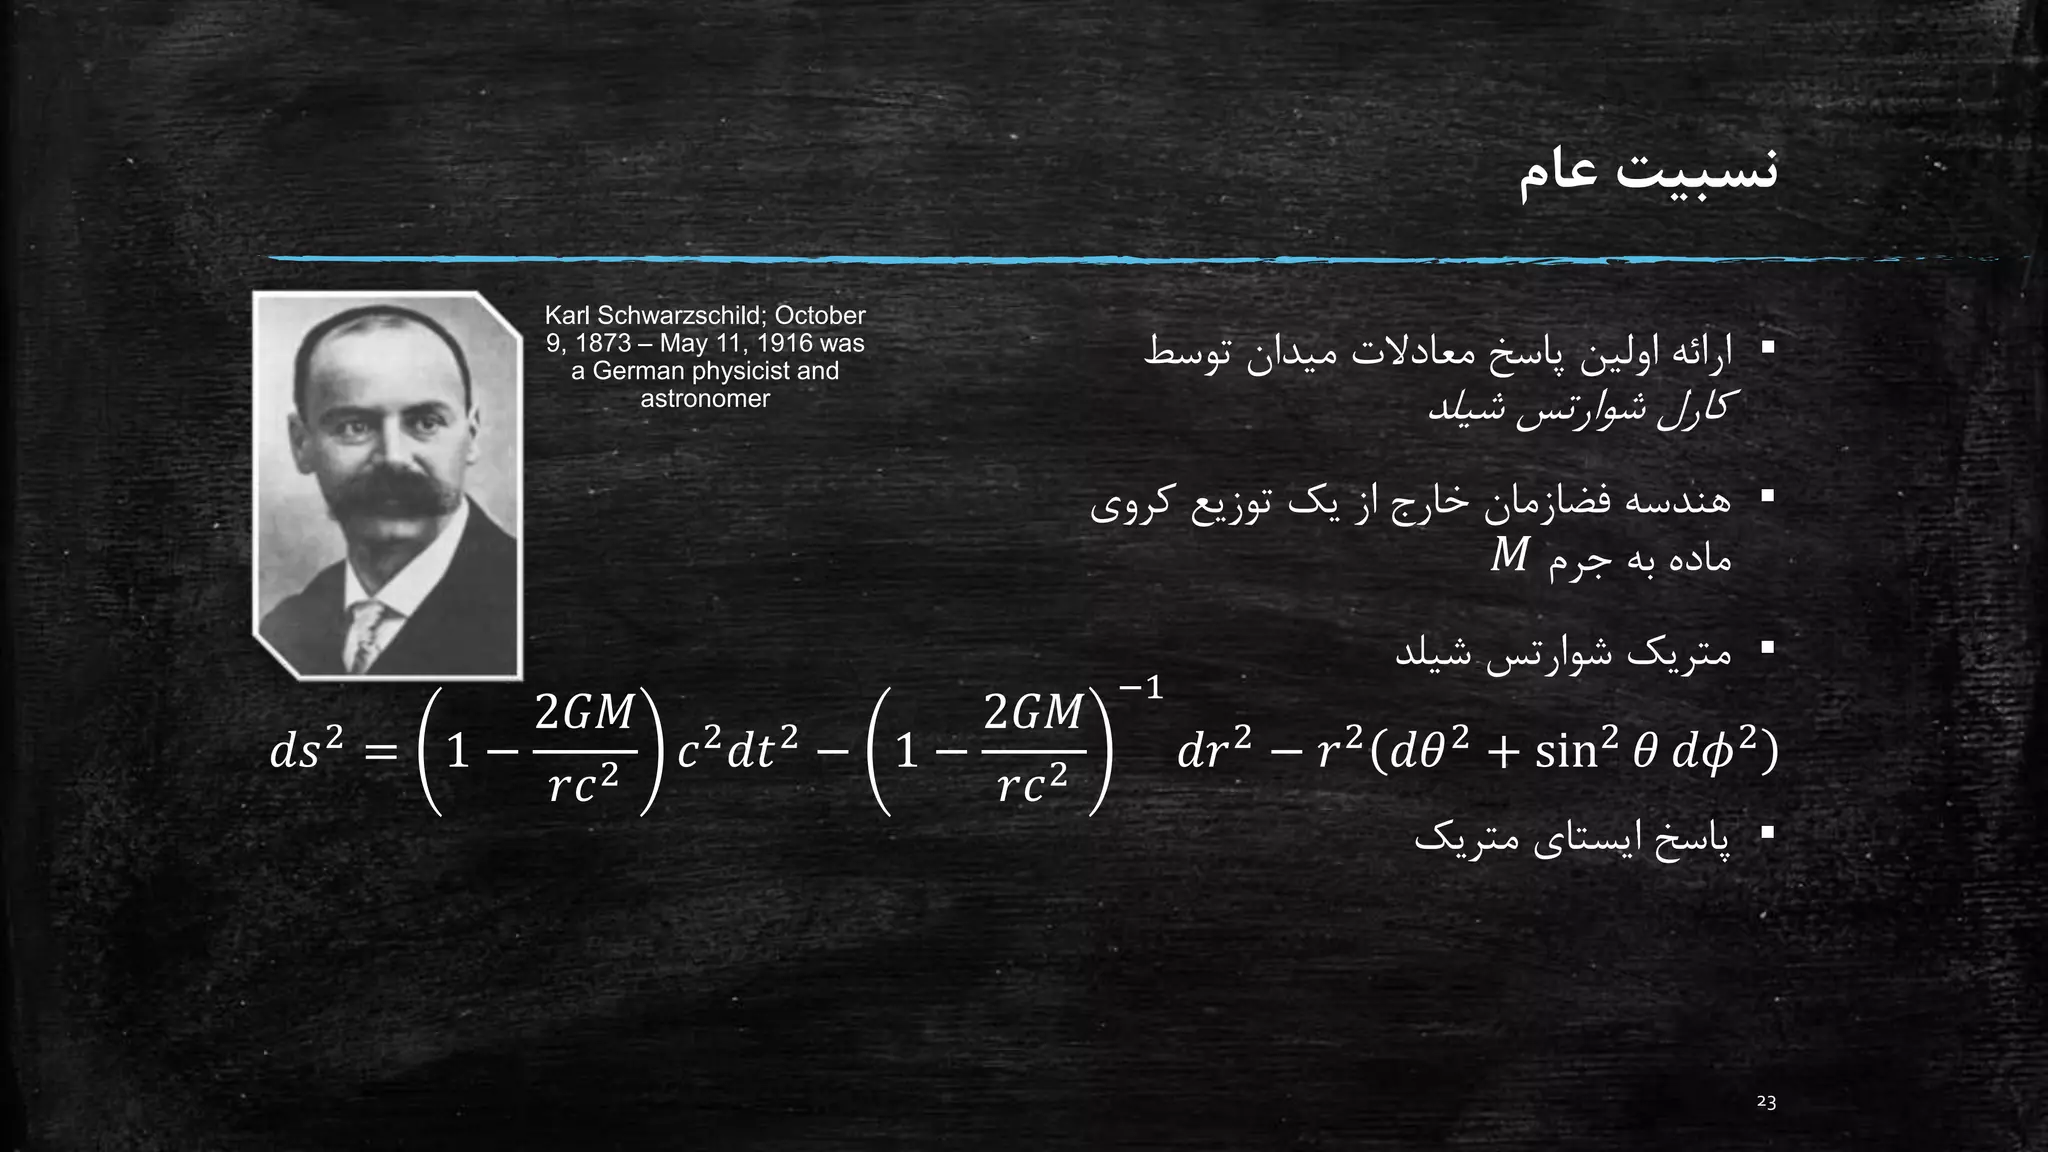 نسبیت عام
Karl Schwarzschild; October
9, 1873 – May 11, 1916 was
a German physicist and
astronomer
▪ ارائه اولین پاسخ معادلات میدان توسط
کارل شوارتس شیلد
▪ هندسه فضازمان خارج از یک توزیع کروی
ماده به جرم M
▪ متریک شوارتس شیلد
ds² = (1 − 2GM/rc²) c²dt² − (1 − 2GM/rc²)⁻¹ dr² − r²(dθ² + sin² θ dϕ²)
▪ پاسخ ایستای متریک
23